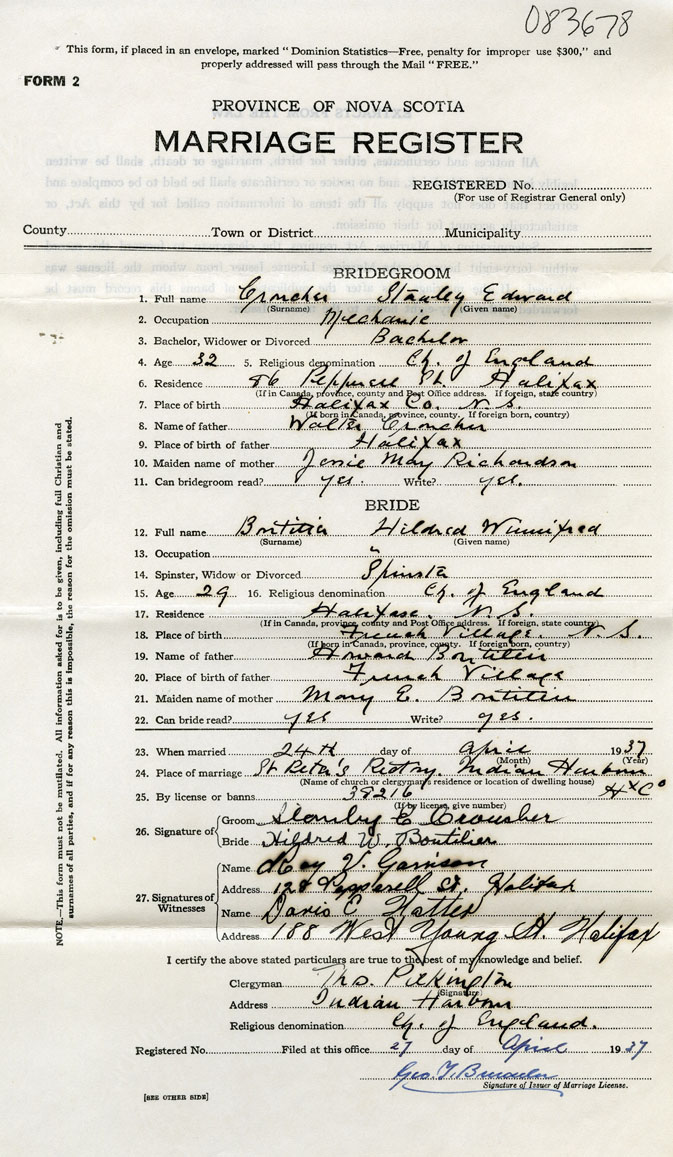 083678
" This form, if placed in an envelope, marked " Dominion Statistics—Free, penalty for improper use $300," and
properly addressed will pass through the Mail " FREE."
FORM 2
PROVINCE OF NOVA SCOTIA
MARRIAGE REGISTER
REGISTERED No.
(For use of Registrar General only)
County Town or District Municipality
BRIDEGROOM
1. Full name Croucher Stanley Edward
(Surname) (Given name)
2. Occupation Mechanic
3. Bachelor, Widower or Divorced Bachelor
4. Age 32 5. Religious denomination Ch. of England
6. Residence 86 Pepperell St. Halifax
(If in Canada, province, county and Post Office address. If foreign, state country)
7. Place of birth Halifax Co. N. S.
(If born in Canada, province, county. If foreign born, country)
8. Name of father Walter Croucher
9. Place of birth of father Halifax
10. Maiden name of mother Jessie May Richardson
11. Can bridegroom read? yes. Write? yes.
BRIDE
12. Full name Boutilier Hildred Winnifred
(Surname) (Given name)
13. Occupation "
14. Spinster, Widow or Divorced Spinster
15. Age 29 16. Religious denomination Ch. of England
17. Residence Halifax. N. S.
(If in Canada, province, county and Post Office address. If foreign, state country)
18. Place of birth French Village. N. S.
(If born in Canada, province, county. If foreign born, country)
19. Name of father Howard Boutilier
20. Place of birth of father French Village
21. Maiden name of mother Mary E. Boutilier
22. Can bride read? yes Write? yes.
23. When married 24th day of April 1937
(Month) (Year)
24. Place of marriage St Peter's Rectory. Indian Harbour
(Name of church or clergyman's residence or location of dwelling house)
25. By license or banns 38216 HxCo
(If by license, give number)
26. Signature of Groom Stanley E Croucher
Bride Hildred W. Boutilier
27. Signatures of Witnesses
Name V. Garrison
Address 128 Pepperell St. Halifax
Name Doris E
Address 188 West Young St. Halifax
I certify the above stated particulars are true to the best of my knowledge and belief.
Clergyman Thos. Pilkington
(Signature)
Address Indian Harbour
Religious denomination Ch. of England.
Registered No. Filed at this office 27 day of April 1937
Geo. T.
Signature of Issuer of Marriage License.
[SEE OTHER SIDE]
NOTE.—This form must not be mutilated. All information asked for is to be given, including full Christian and
surnames of all parties, and if for any reason this is impossible, the reason for the omission must be stated.